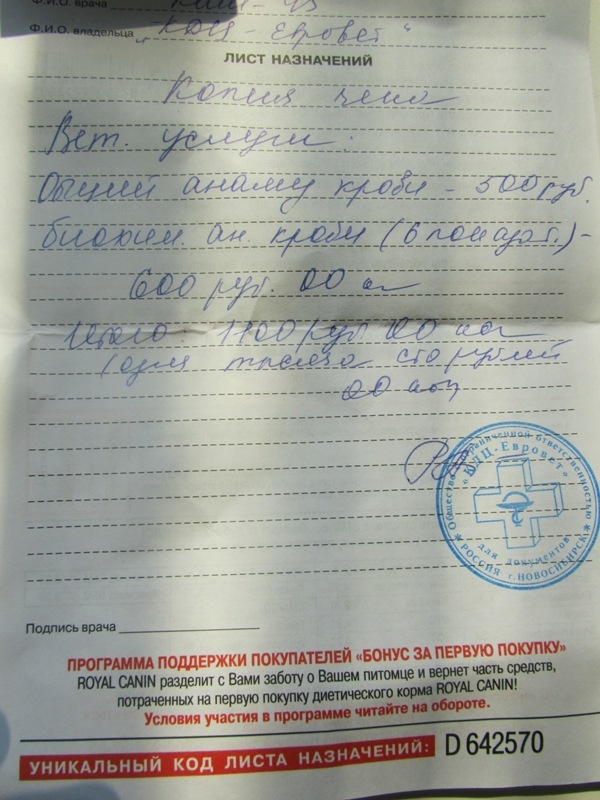 Ф.И.О. врача
Ф.И.О. владельца „КДЦ - Евровет“
ЛИСТ НАЗНАЧЕНИЙ
Копия чека
Вет. услуги:
Общий анализ крови - 500 руб.
биохим. ан. крови (6 показат.) -
600 руб. 00 к
Итого 1100 руб 00 коп
(одна тысяча сто рублей
00 коп
Общество с ограниченной ответственностью
«КДЦ-Евровет»
для документов
РОССИЯ г.НОВОСИБИРСК
Подпись врача
ПРОГРАММА ПОДДЕРЖКИ ПОКУПАТЕЛЕЙ «БОНУС ЗА ПЕРВУЮ ПОКУПКУ»
ROYAL CANIN разделит с Вами заботу о Вашем питомце и вернет часть средств,
потраченных на первую покупку диетического корма ROYAL CANIN!
Условия участия в программе читайте на обороте.
УНИКАЛЬНЫЙ КОД ЛИСТА НАЗНАЧЕНИЙ: D 642570